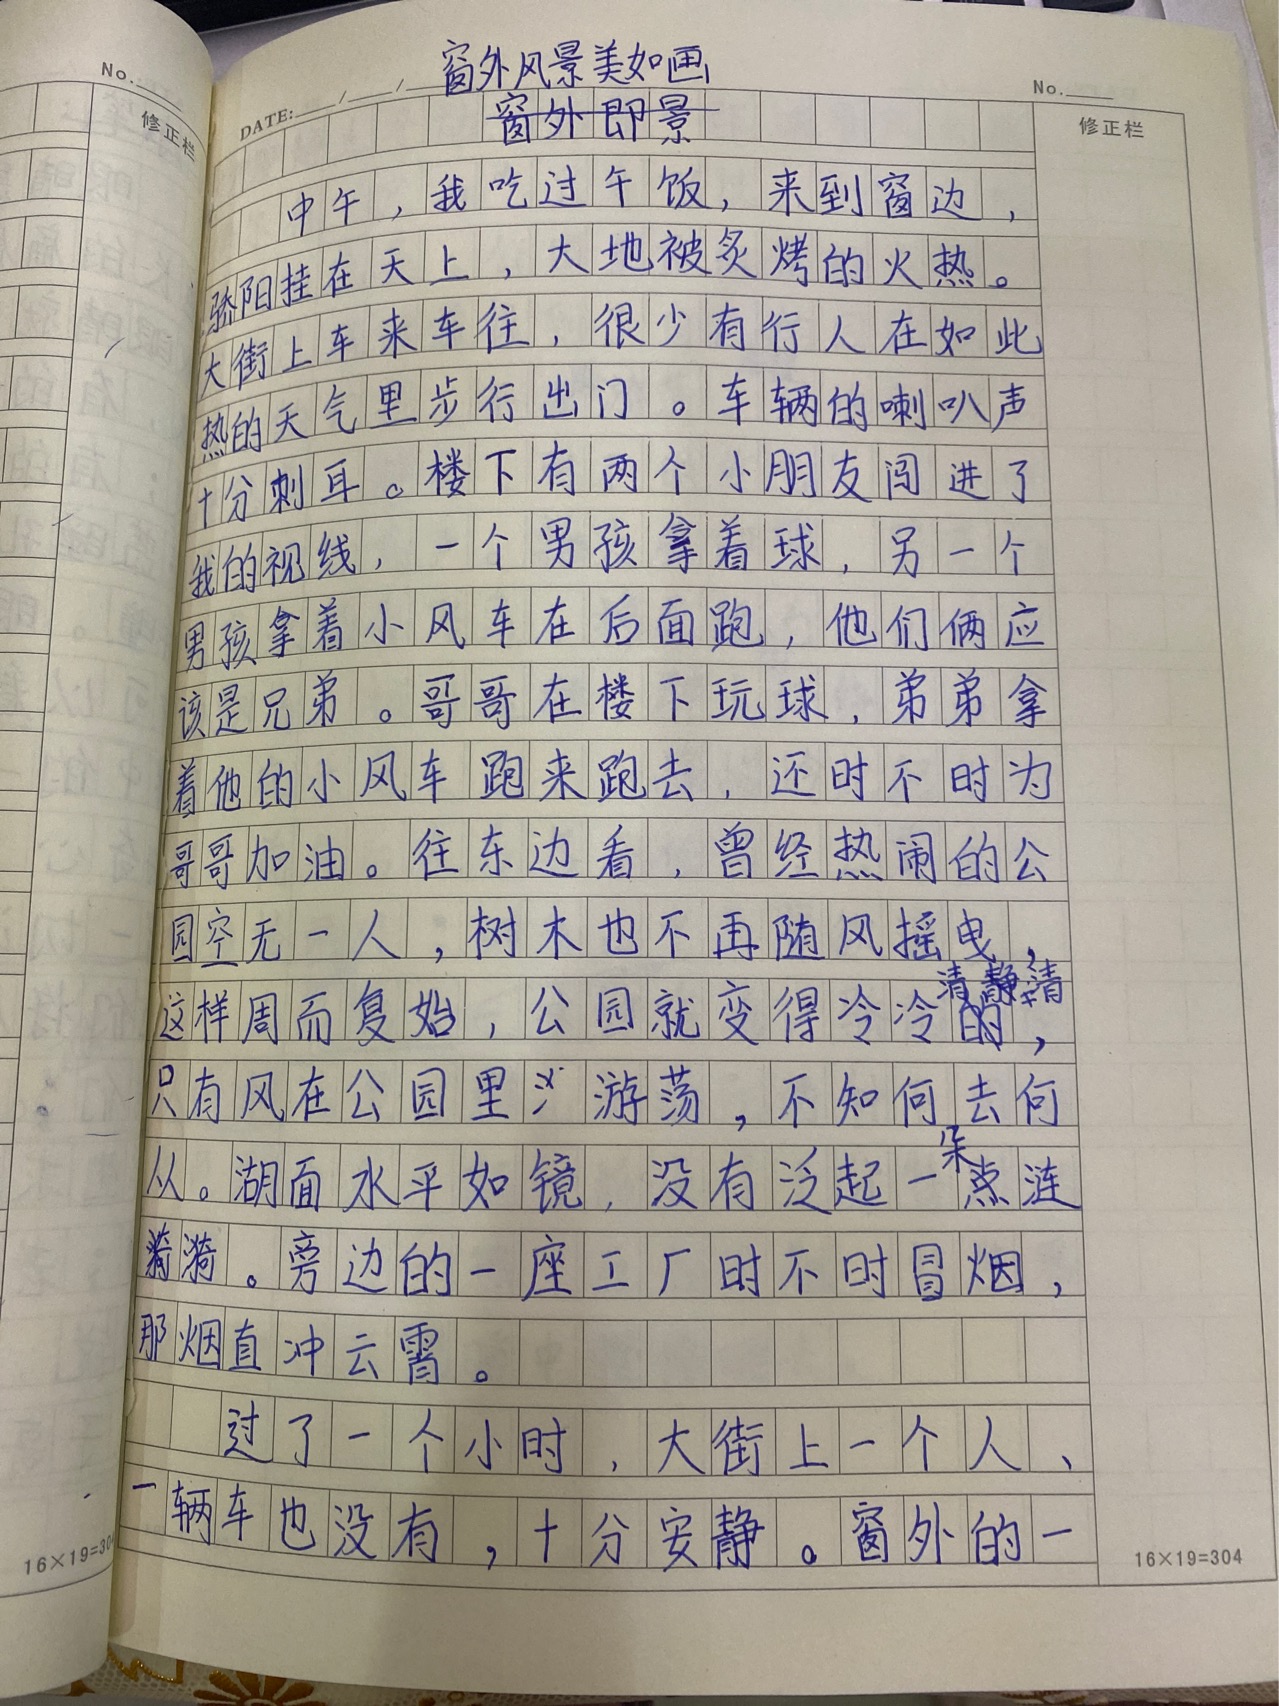 No.
修正栏
窗外风景美如画
DATE: / /
No.
窗外即景
修正栏
中午，我吃过午饭，来到窗边，
骄阳挂在天上，大地被炙烤的火热。
大街上车来车往，很少有行人在如此
热的天气里步行出门。车辆的喇叭声
十分刺耳。楼下有两个小朋友闯进了
我的视线，一个男孩拿着球，另一个
男孩拿着小风车在后面跑，他们俩应
该是兄弟。哥哥在楼下玩球，弟弟拿
着他的小风车跑来跑去，还时不时为
哥哥加油。往东边看，曾经热闹的公
园空无一人，树木也不再随风摇曳，
清静清
这样周而复始，公园就变得冷冷的，
只有风在公园里游荡，不知何去何
从。湖面水平如镜，没有泛起一点涟
漪漪。旁边的一座工厂时不时冒烟，
那烟直冲云霄。
过了一个小时，大街上一个人、
一辆车也没有，十分安静。窗外的一
16×19=304
16×19=304